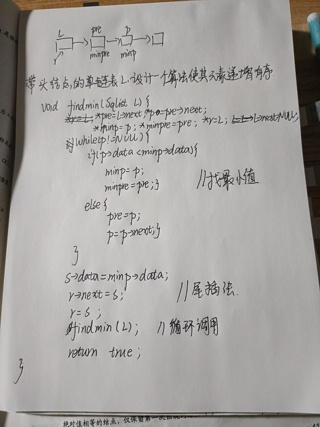 L pre p
r minpre minp
带头结点的单链表L.设计一个算法使其元素递增有序
void findmin (Sqlist L) {
*pre=L->next; *p=pre->next;
*minp=p; *minpre=pre; *r=L;
while(p!=NULL) {
if(p->data < minp->data){
minp=p;
minpre=pre;} //找最小值
else {
pre=p;
p=p->next;}
}
s->data=minp->data;
r->next=s; //尾插法
r=s;
findmin(L); //循环调用
return true;
}
绝对值相等的结点，仅保留第一次出现的